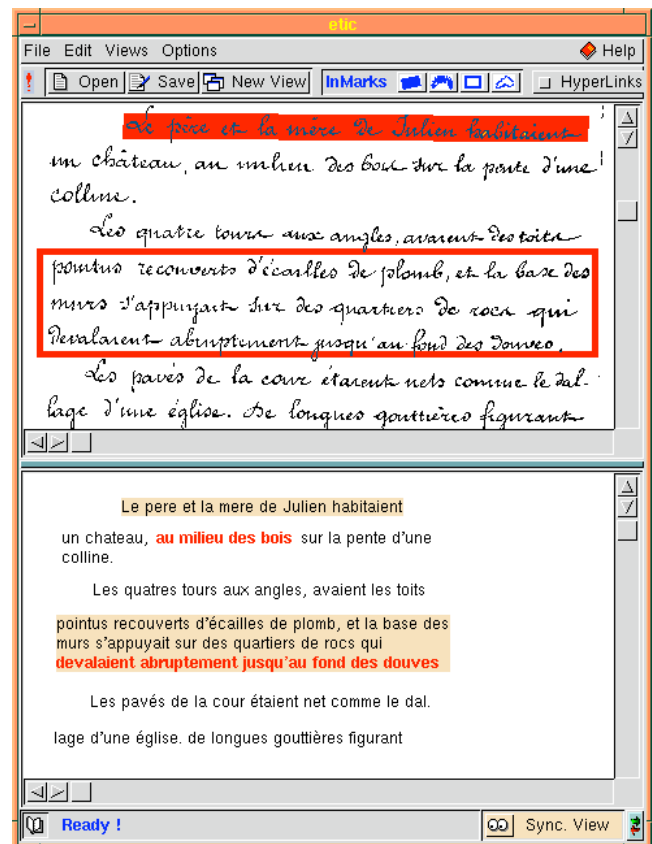 etic
File Edit Views Options Help
Open Save New View InMarks HyperLinks
Le père et la mère de Julien habitaient
un château, au milieu des bois sur la pente d'une
colline.
Les quatre tours aux angles, avaient des toits
pointus recouverts d'écailles de plomb, et la base des
murs s'appuyait sur des quartiers de rocs qui
dévalaient abruptement jusqu'au fond des douves.
Les pavés de la cour étaient nets comme le dal-
lage d'une église. De longues gouttières figurant
Le pere et la mere de Julien habitaient
un chateau, au milieu des bois sur la pente d'une
colline.
Les quatres tours aux angles, avaient les toits
pointus recouverts d'écailles de plomb, et la base des
murs s'appuyait sur des quartiers de rocs qui
devalaient abruptement jusqu'au fond des douves
Les pavés de la cour étaient net comme le dal.
lage d'une église. de longues gouttières figurant
Ready ! Sync. View